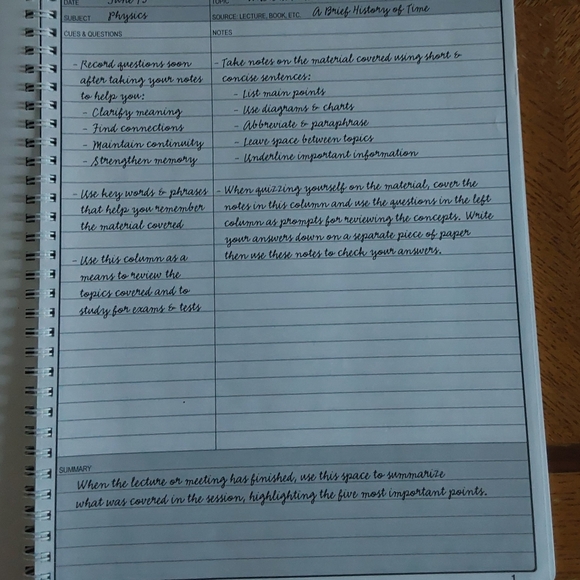 DATE June 13
TOPIC
SUBJECT Physics
SOURCE: LECTURE, BOOK, ETC. A Brief History of Time
CUES & QUESTIONS
NOTES
- Record questions soon
after taking your notes
to help you:
- Clarify meaning
- Find connections
- Maintain continuity
- Strengthen memory
- Use key words & phrases
that help you remember
the material covered
- Use this column as a
means to review the
topics covered and to
study for exams & tests
- Take notes on the material covered using short &
concise sentences:
- List main points
- Use diagrams & charts
- Abbreviate & paraphrase
- Leave space between topics
- Underline important information
- When quizzing yourself on the material, cover the
notes in this column and use the questions in the left
column as prompts for reviewing the concepts. Write
your answers down on a separate piece of paper
then use these notes to check your answers.
SUMMARY
When the lecture or meeting has finished, use this space to summarize
what was covered in the session, highlighting the five most important points.
1